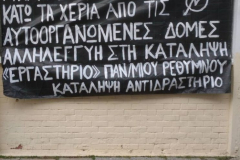 ΚΑΤΩ ΤΑ ΧΕΡΙΑ ΑΠΟ ΤΙΣ
ΑΥΤΟΟΡΓΑΝΩΜΕΝΕΣ ΔΟΜΕΣ
ΑΛΛΗΛΕΓΓΥΗ ΣΤΗ ΚΑΤΑΛΗΨΗ
«ΕΡΓΑΣΤΗΡΙΟ» ΠΑΝ/ΜΙΟΥ ΡΕΘΥΜΝΟΥ
ΚΑΤΑΛΗΨΗ ΑΝΤΙΔΡΑΣΤΗΡΙΟ